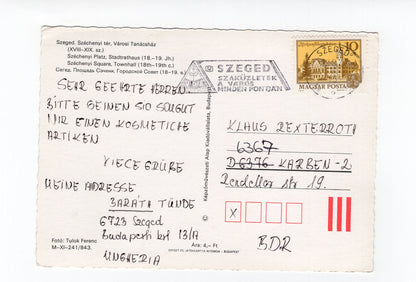 Szeged. Széchenyi tér, Városi Tanácsház
(XVIII–XIX. sz.)
Széchenyi Platz, Stadtrathaus (18.–19. Jh.)
Széchenyi Square, Townhall (18th–19th c.)
Сегед. Площадь Сечени, Городской Совет (18–19. в.)
SZEGED
SZAKÜZLETEK
A VÁROS
MINDEN PONTJÁN
SZEGED
10
MAGYAR POSTA
SEHR GEEHRTE HERREN
BITTE SEINEN SIO SO GUT
MIR EINEN KOSMETICHE
ARTIKEN
VIECE GRÜßE
MEINE ADRESSE
BARATI TÜNDE
6723 Szeged
Budapesti krt 13/A
UNGHERIA
Képzőművészeti Alap Kiadóvállalata, Budapest
KLAUS REXTERROTH
6367
D-6376 KARBEN-2
str 19.
BDR
x
Fotó: Tulok Ferenc
M–XI–241/843.
Ára: 4,– Ft